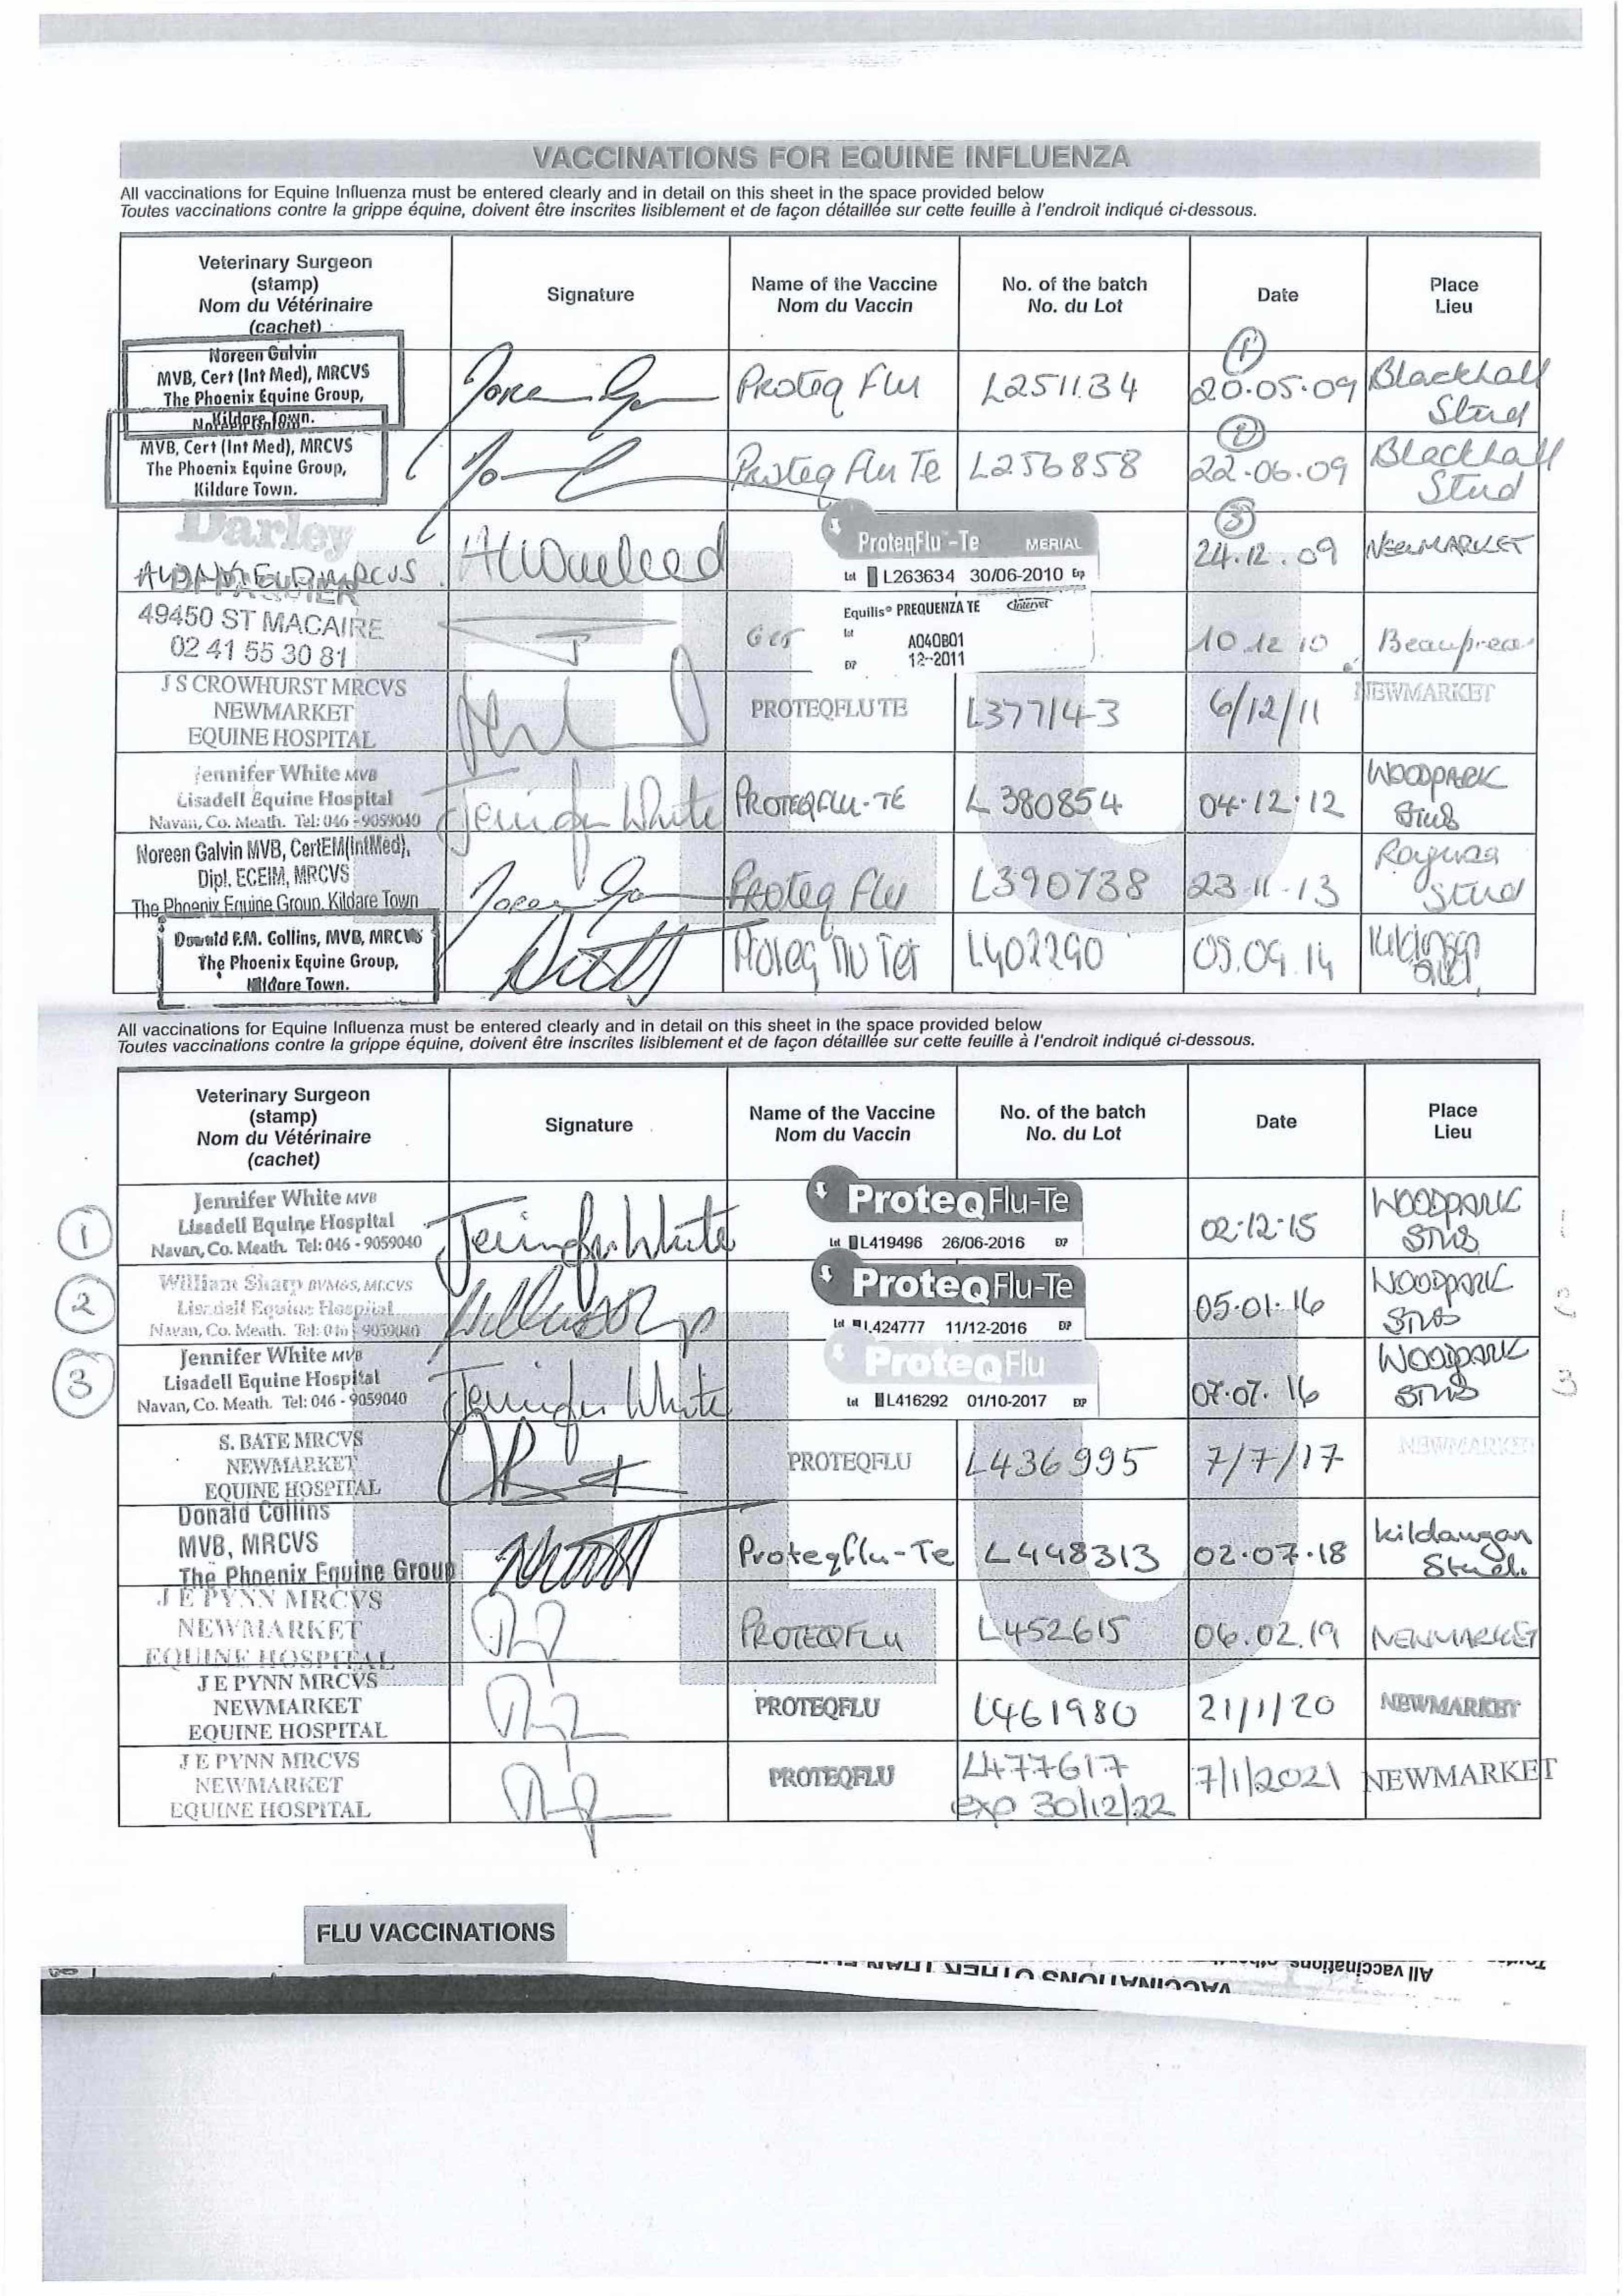 VACCINATIONS FOR EQUINE INFLUENZA
All vaccinations for Equine Influenza must be entered clearly and in detail on this sheet in the space provided below
Toutes vaccinations contre la grippe équine, doivent être inscrites lisiblement et de façon détaillée sur cette feuille à l'endroit indiqué ci-dessous.
Veterinary Surgeon
(stamp)
Nom du Vétérinaire
(cachet)
Signature
Name of the Vaccine
Nom du Vaccin
No. of the batch
No. du Lot
Date
Place
Lieu
Noreen Galvin
MVB, Cert (Int Med), MRCVS
The Phoenix Equine Group,
Kildare Town.
Proteq Flu
L251134
1
20.05.09
Blackhall
Stud
MVB, Cert (Int Med), MRCVS
The Phoenix Equine Group,
Kildare Town.
Proteq Flu Te
L256858
2
22.06.09
Blackhall
Stud
Darley
MRCVS
ProteqFlu-Te MERIAL
Lot L263634 30/06-2010 Exp
3
24.12.09
NEWMARKET
49450 ST MACAIRE
02 41 55 30 81
Equilis® PREQUENZA TE Intervet
Lot
A040B01
EXP 12-2011
10 12 10
Beaupreau
J S CROWHURST MRCVS
NEWMARKET
EQUINE HOSPITAL
PROTEQFLU TE
L377143
6/12/11
NEWMARKET
Jennifer White MVB
Lisadell Equine Hospital
Navan, Co. Meath. Tel: 046 - 9059040
Jennifer White
PROTEQFLU-TE
L380854
04.12.12
WOODPARK
STUD
Noreen Galvin MVB, CertEM(IntMed),
Dipl. ECEIM, MRCVS
The Phoenix Equine Group, Kildare Town
Proteq Flu
L390738
23-11-13
Ragusa
Stud
Donald F.M. Collins, MVB, MRCVS
The Phoenix Equine Group,
Kildare Town.
Proteq Flu Tet
L402290
05.09.14
Kildangan
Stud
All vaccinations for Equine Influenza must be entered clearly and in detail on this sheet in the space provided below
Toutes vaccinations contre la grippe équine, doivent être inscrites lisiblement et de façon détaillée sur cette feuille à l'endroit indiqué ci-dessous.
Veterinary Surgeon
(stamp)
Nom du Vétérinaire
(cachet)
Signature
Name of the Vaccine
Nom du Vaccin
No. of the batch
No. du Lot
Date
Place
Lieu
1
Jennifer White MVB
Lisadell Equine Hospital
Navan, Co. Meath. Tel: 046 - 9059040
Jennifer White
ProteqFlu-Te
Lot L419496 26/06-2016 EXP
02.12.15
WOODPARK
STUD
2
William Sharp BVM&S, MRCVS
Lisadell Equine Hospital
Navan, Co. Meath. Tel: 046 - 9059040
ProteqFlu-Te
Lot L424777 11/12-2016 EXP
05.01.16
WOODPARK
STUD
3
Jennifer White MVB
Lisadell Equine Hospital
Navan, Co. Meath. Tel: 046 - 9059040
Jennifer White
ProteqFlu
Lot L416292 01/10-2017 EXP
07.07.16
WOODPARK
STUD
3
S. BATE MRCVS
NEWMARKET
EQUINE HOSPITAL
PROTEQFLU
L436995
7/7/17
NEWMARKET
Donald Collins
MVB, MRCVS
The Phoenix Equine Group
Proteqflu-Te
L448313
02.07.18
Kildangan
Stud.
J E PYNN MRCVS
NEWMARKET
EQUINE HOSPITAL
PROTEQFLU
L452615
06.02.19
NEWMARKET
J E PYNN MRCVS
NEWMARKET
EQUINE HOSPITAL
PROTEQFLU
L461980
21/1/20
NEWMARKET
J E PYNN MRCVS
NEWMARKET
EQUINE HOSPITAL
PROTEQFLU
L477617
exp 30/12/22
7/1/2021
NEWMARKET
FLU VACCINATIONS
VACCINATIONS OTHER THAN
All vaccinations